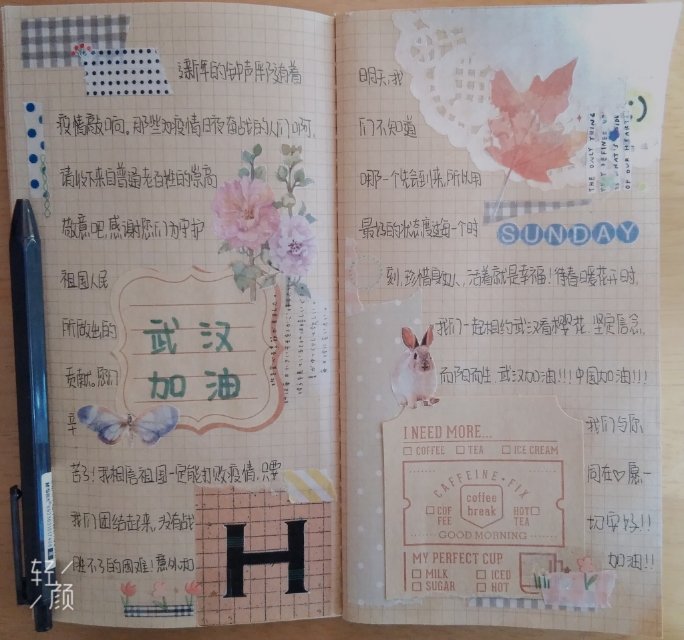 新年的钟声伴随着
疫情敲响。那些为疫情日夜奋战的人们啊,
请收下来自普通老百姓的崇高
敬意吧,感谢您们为守护
祖国人民
所做出的
贡献。您们
辛
苦了!我相信祖国一定能打败疫情,只要
我们团结起来,没有战
胜不了的困难!意外和
武汉
加油
H
轻颜
明天,我
们不知道
哪一个先会到来,所以用
最好的状态度过每一个时
刻,珍惜身边人,活着就是幸福!待春日暖花开时,
我们一起相约武汉看樱花.坚定信念,
向阳而生.武汉加油!!!中国加油!!!
我们与你
同在♡愿一
切安好!!
加油!!
THE ONLY THING
OF OUR HEART
SUNDAY
I NEED MORE...
COFFEE TEA ICE CREAM
CAFFEINE·FIX
coffee
break
COF
FEE
HOT
TEA
GOOD MORNING
MY PERFECT CUP
MILK ICED
SUGAR HOT